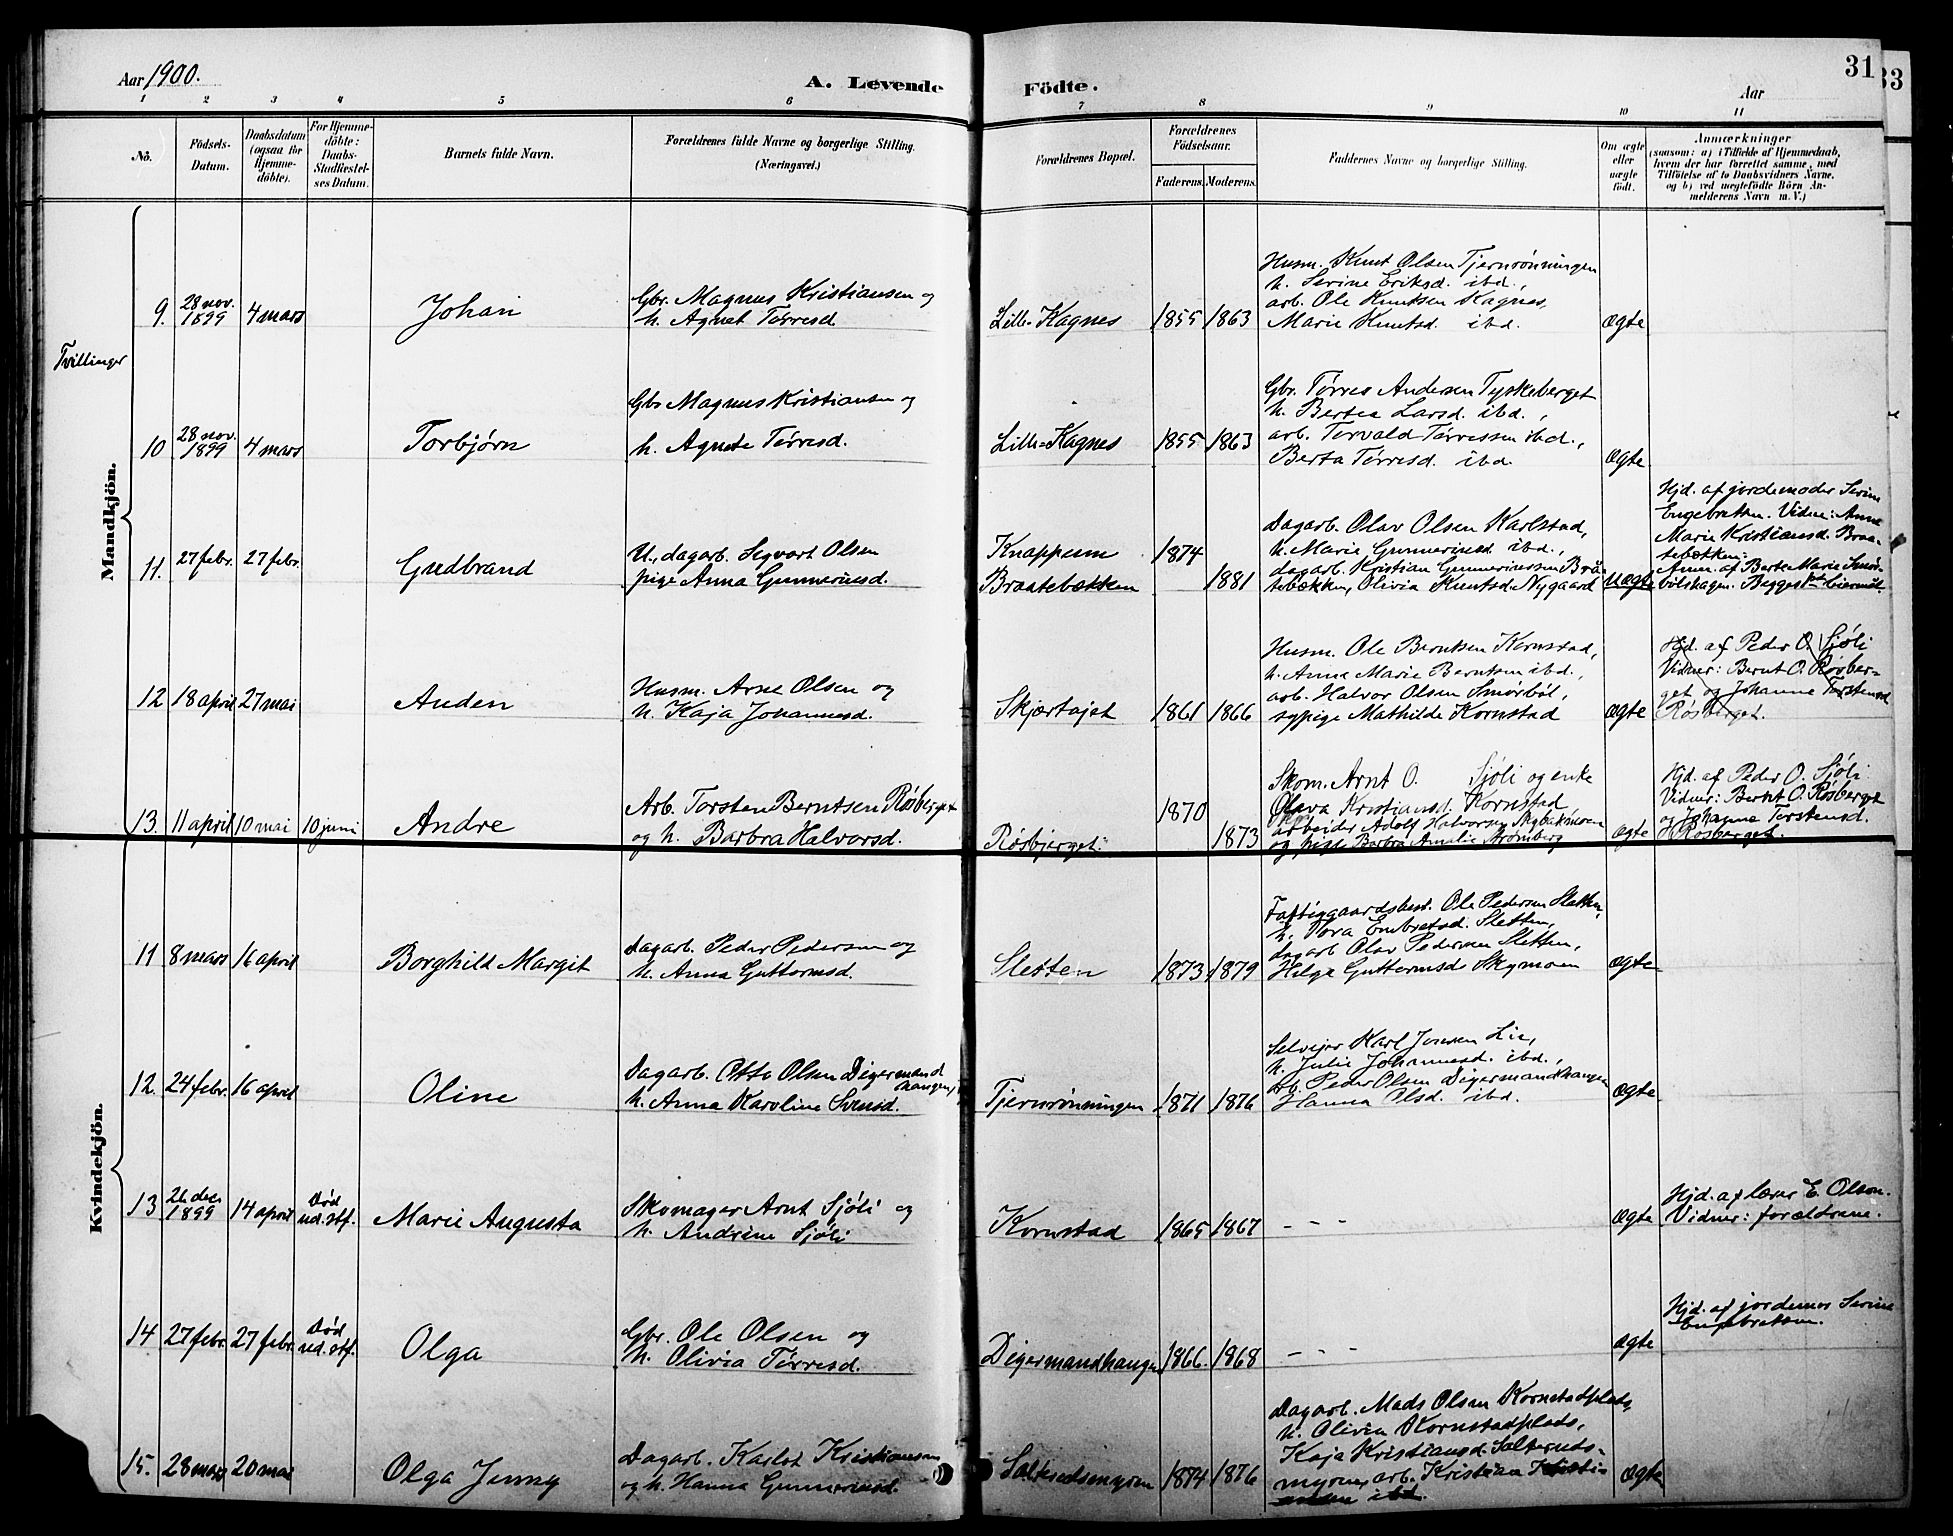 Aar 1900.
A. Levende Födte.
Aar
31
33
1 2 3 4 5 6 7 8 9 10 11
No.
Födsels-
Datum.
Daabsdatum
(ogsaa for
Hjemme-
döbte).
For Hjemme-
döbte:
Daabs-
Stadfæstel-
ses Datum.
Barnets fulde Navn.
Forældrenes fulde Navne og borgerlige Stilling.
(Næringsvei.)
Forældrenes Bopæl.
Forældrenes
Födselsaar.
Faderens.
Moderens.
Faddernes Navne og borgerlige Stilling.
Om ægte
eller
uægte
födt.
Anmærkninger
(saasom: a) i Tilfælde af Hjemmedaab,
hvem der har forrettet samme, med
Tilföielse af to Daabsvidners Navne.
og b) ved uægtefödte Börn An-
melderens Navn m. V.)
Mandkjön.
Tvillinger
9. 28 nov. 1899 4 mars
Johan
Gbr. Magnus Kristiansen og
h. Agnet Tørresd.
Lille-Kagnes 1855 1863
Husm. Knut Olsen Tjernrønningen
h. Serine Eriksd. ibd.,
arb. Ole Knutsen Kagnes,
Marie Knutsd. ibd.
ægte
10 28 nov. 1899 4 mars
Torbjørn
Gbr Magnus Kristiansen og
h. Agnete Tørresd.
Lille=Kagnes 1855 1863
Gbr. Tørres Andersen Tyskeberget
h. Bertea Larsd. ibd.,
arb. Torvald Tørressen ibd.,
Berta Tørresd. ibd.
ægte
11. 27 febr. 27 febr.
Gudbrand
U., dagarb. Segvart Olsen
pige Anna Gunneriusd.
Knappum 1874
Braatebækken 1881
Dagarb. Olav Olsen Karlstad,
h. Marie Gunneriusd ibd.,
dagarb. Kristian Gunneriussen Brå-
tebækken, Olivia Knutsd. Nygaard
uægte
Hjd. af jordemoder Serine
Engebretsen. Vidner: Anne
Marie Kristiansd. Braa-
tebækken.
Anm. af Berte Marie Smør-
bölshagen. Begges 1ste leiermål.
12 18 april 27 mai
Auden
Husm. Arne Olsen og
h. Kaja Johannesd.
Skjærtajet 1861 1866
Husm. Ole Berntsen Kornstad,
h. Anna Marie Berntsen ibd.,
arb. Halvor Olsen Smörböl,
sypige Mathilde Kornstad
ægte
Hjd. af Peder O. Sjöli
Vidner: Bernt O. Røsber-
get og Johanne Torstensd
Røsberget.
13. 11 april 10 mai 10 juni
Andre
Arb. Torsten Berntsen Røsberget
og h. Barbra Halvorsd.
Røsbjerget. 1870 1873
Skom. Arnt O. Sjöli og enke
Olava Kristiansd. Kornstad
arbeider Adolf Halvorsen
og pige Barbra Amalie Strömberg
ægte
Hjd. af Peder O. Sjöli
Vidner: Bernt O. Røsberget
og Johanne Torstensd.
Røsberget.
Kvindekjön.
11 8 mars 16 april
Borghild Margit
Dagarb. Peder Pedersen og
h. Anna Guttormsd.
Sletten 1873 1879
Fattiggaardsbest. Ole Pedersen Sletten,
h. Tora Embretsd. Sletten,
dagarb Olav Pedersen Sletten,
Helga Guttormsd. Skymoen
ægte
12. 24 febr. 16 april
Oline
Dagarb. Otto Olsen Digermand
hangen,
h. Anna Karoline Svensd.
Tjernrønningen 1871 1876
Selveier Karl Jensen Lie,
h. Julie Johannesd. ibd.,
arb. Peder Olsen Digermandhangen
Hanna Olsd. ibd.
ægte
13 26 dec. 1899 14 april Død
ud. stf.
Marie Augusta
Skomager Arnt Sjöli og
h. Andrine Sjöli
Kornstad 1865 1867
- - -
ægte
Hjd. af lærer E. Olson.
Vidner: forældrene.
14 27 febr. 27 febr. Død
ud. stf.
Olga
Gbr. Ole Olsen og
h. Olivia Tørresd.
Digermandhangen 1866. 1868
- - -
ægte
Hjd. af jordemor Serine
Engebretsen.
15. 28 mars 20 mai
Olga Jenny
Dagarb. Karlot Kristiansen
og h. Hanna Gunneriusd.
Sætersdsmyren 1874 1876
Dagarb. Mads Olsen Kornstadplads,
h. Olivia Kornstadplads,
Kaja Kristiansd.
myren, arb. Kristian Kristi-
ansen ibd.
ægte